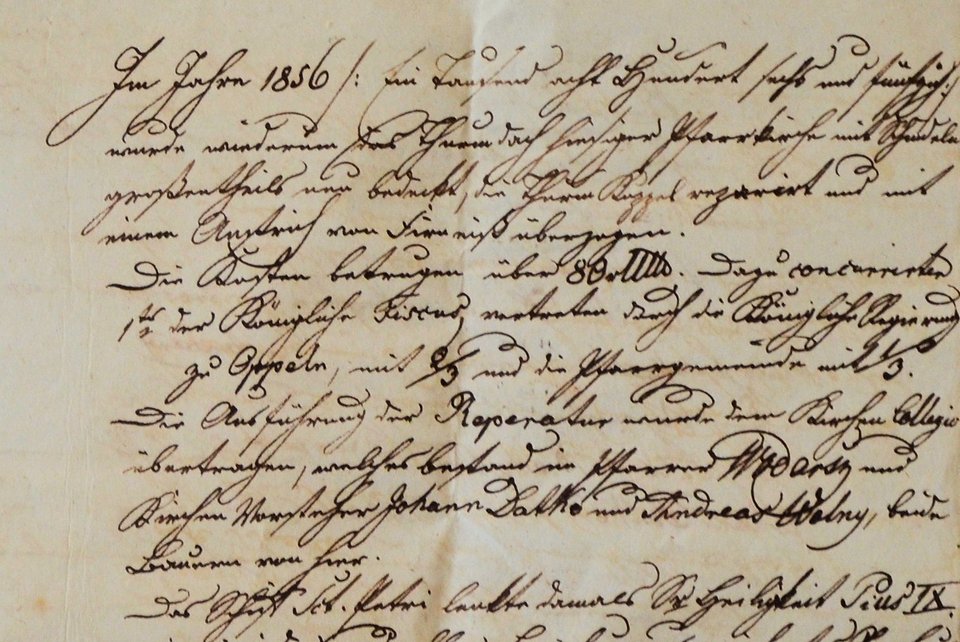 Im Jahre 1856 /: Ein Tausend acht Hundert sechs und fünfzig :/
wurde wiederum das Thurmdach hiesiger Pfarrkirche mit Schindeln
großentheils neu bedeckt, die Thurm Kuppel reparirt und mit
einem Anstrich von Firneiß überzogen.
Die Kosten betrugen über 80 . Dazu concurrirten
der Königliche Fiscus, vertreten durch die Königliche Regierung
zu Oppeln, mit 2/3 und die Pfarrgemeinde mit 1/3.
Die Ausführung der Reperatur wurde dem Kirchen Collegio
übertragen, welches bestand im Pfarrer Wodarz und
Kirchen Vorsteher Johann Datko und Andreas Wolny, beide
Bauern von hier.
Das Schiff Sct. Petri lenkte damals Sr Heiligkeit Pius IX.